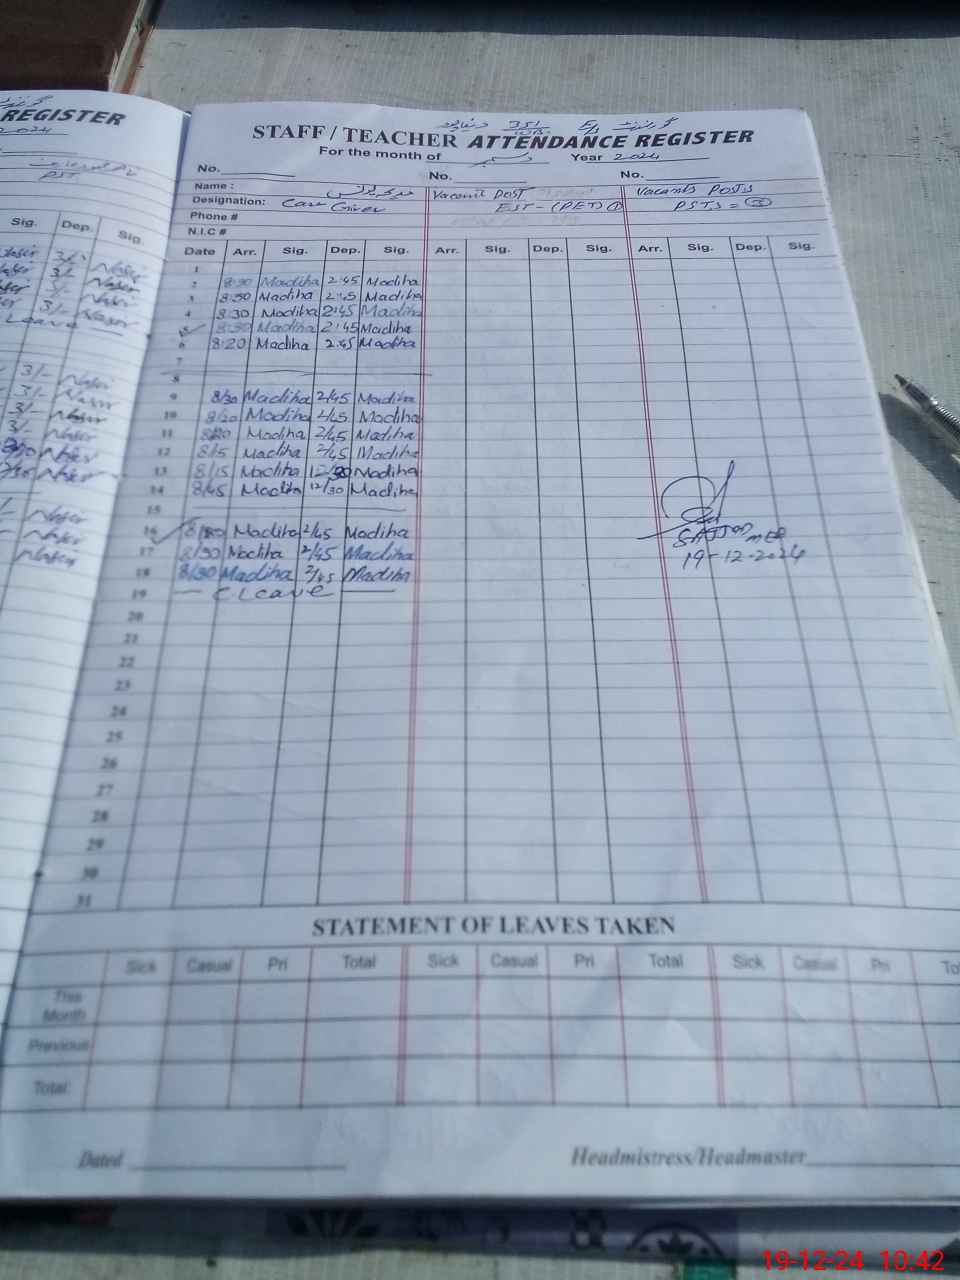 REGISTER
2024
PST
Sig. Dep. Sig.
3/- Naser
3/- Naser
3/- Naser
3/- Naser
Leave
3/- Naser
3/- Naser
3/- Naser
3/- Naser
Naser
Naser
Naser
Naser
STAFF / TEACHER ATTENDANCE REGISTER
351
For the month of دسمبر Year 2024
No. No. No.
Name : Vacant Post Vacants Posts
Designation: Care Giver EST-(PET) ① PSTs = ③
Phone #
N.I.C #
Date Arr. Sig. Dep. Sig. Arr. Sig. Dep. Sig. Arr. Sig. Dep. Sig.
1
2 8:30 Madiha 2:45 Madiha
3 8:30 Madiha 2:45 Madiha
4 8:30 Madiha 2:45 Madiha
5 8:30 Madiha 2:45 Madiha
6 8:20 Madiha 2:45 Madiha
7
8
9 8/30 Madiha 2/45 Madiha
10 8/20 Madiha 2/45 Madiha
11 Madiha 2/45 Madiha
12 8/5 Madiha 2/45 Madiha
13 8/15 Madiha 12/30 Madiha
14 8/45 Madiha 12/30 Madiha
15
16 Madiha 2/45 Madiha
17 8/30 Madiha 2/45 Madiha
18 8/30 Madiha 2/45 Madiha
19 C Leave
20
21
22
23
24
25
26
27
28
29
30
31
19-12-2024
STATEMENT OF LEAVES TAKEN
Sick Casual Pri Total Sick Casual Pri Total Sick Casual Pri
This Month
Previous
Total
Dated Headmistress/Headmaster
19-12-24 10:42